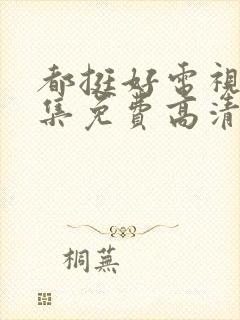 都挺好电視
集免費高清
桐蕪